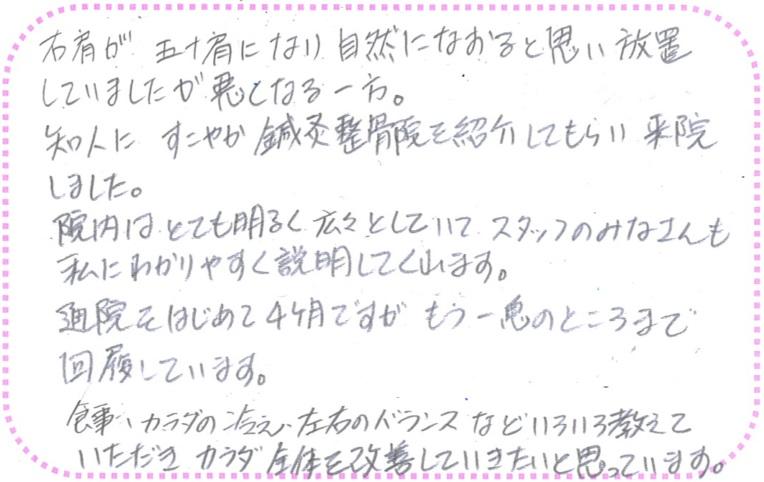 右肩が 五十肩になり 自然になおると思い 放置
していましたが悪くなる一方。
知人に すこやか 鍼灸整骨院を紹介してもらい 来院
しました。
院内は とても明るく 広々としていて スタッフのみなさんも
私に わかりやすく説明してくれます。
通院をはじめて 4ヶ月ですが もう一息のところまで
回履しています。
食事、カラダの冷え、左右のバランス など いろいろ教えて
いただき カラダ 全体を改善していきたいと思っています。